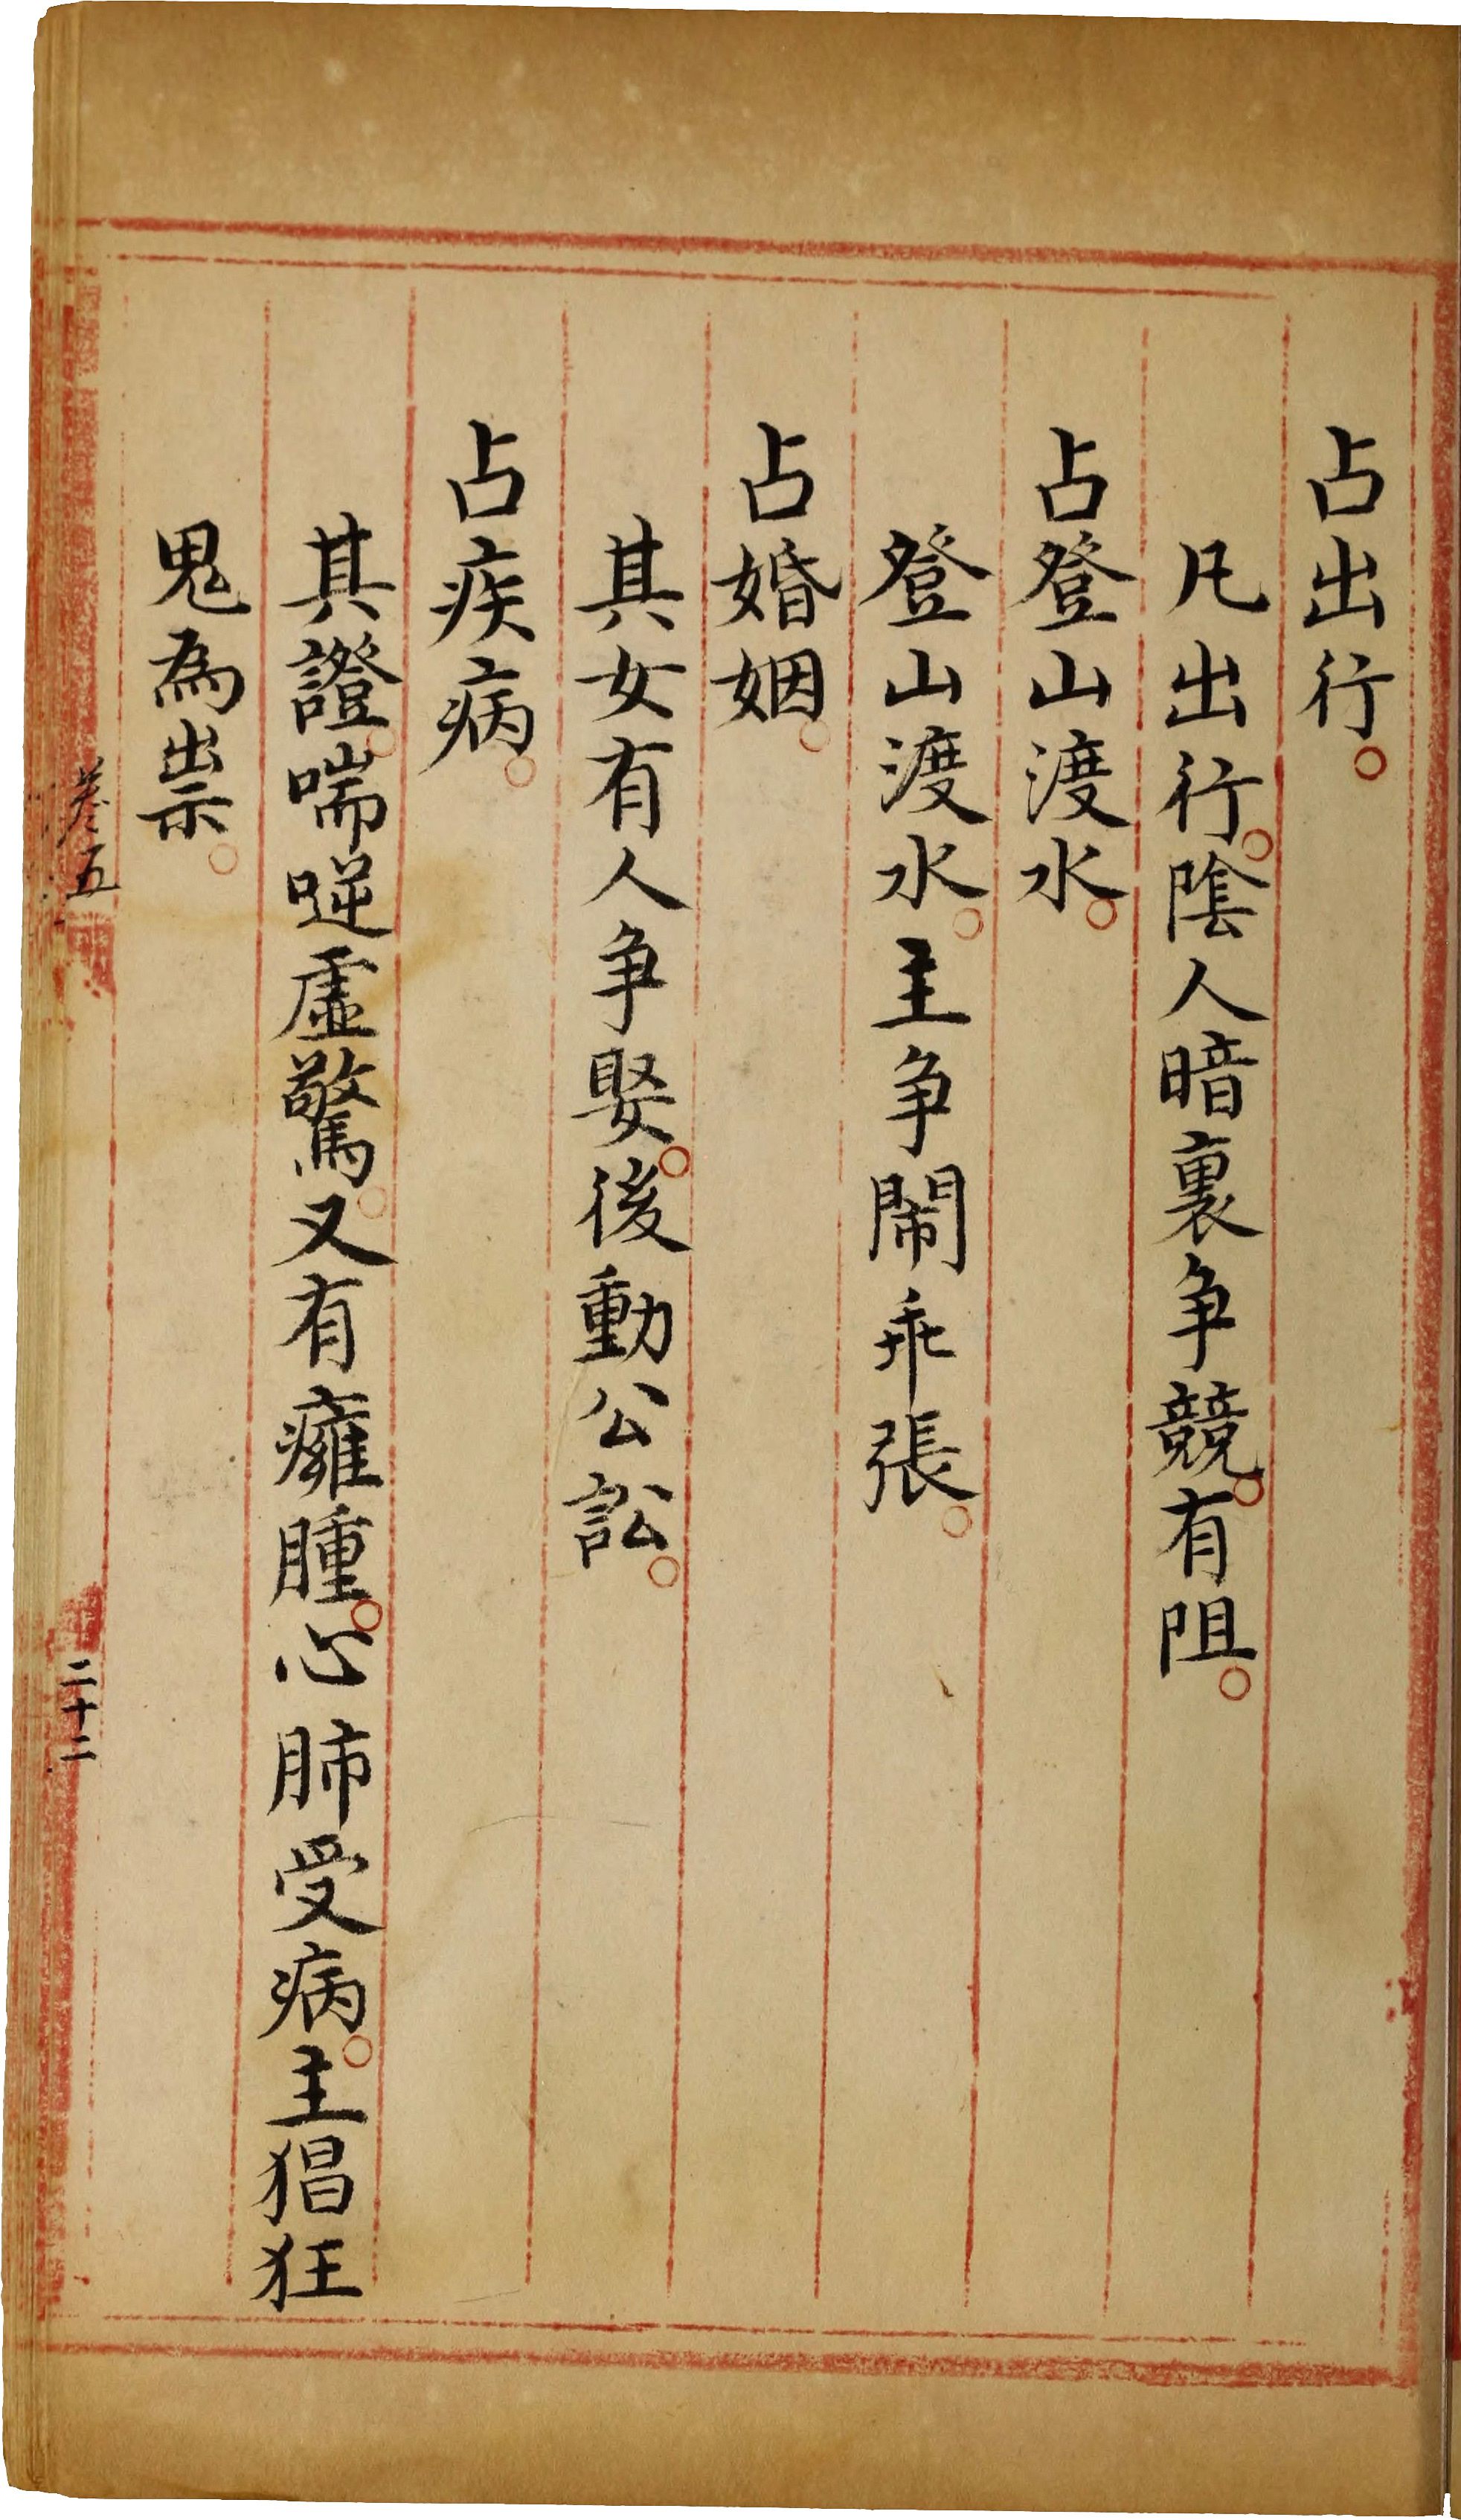 占出行。
凡出行。陰人暗裏争競。有阻。
占登山渡水。
登山渡水。主争鬧乖張。
占婚姻。
其女有人争娶。後動公訟。
占疾病。
其證。喘逆虛驚。又有癰腫。心肺受病。主猖狂
鬼為祟。
卷五
二十二